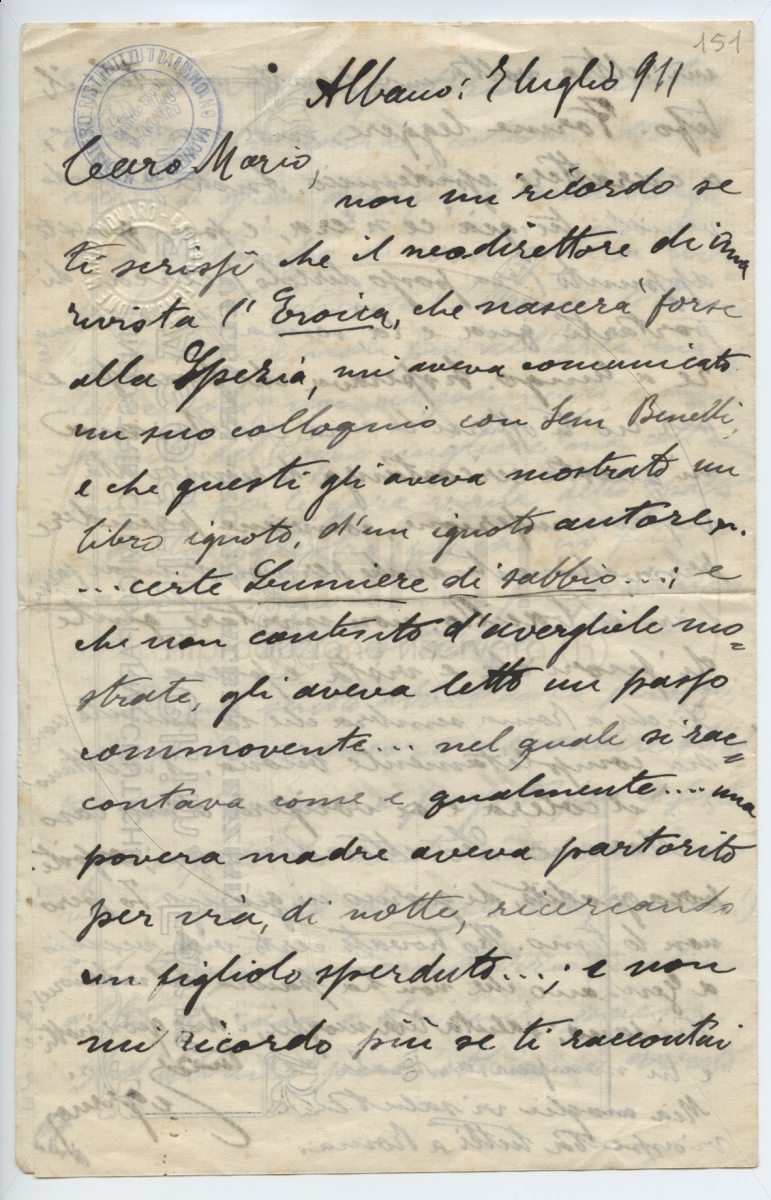 151
Albano: 2 luglio 911
Caro Mario,
non mi ricordo se
ti scrissi che il neodirettore di una
rivista l'Eroica, che nascerà forse
alla Spezia, mi aveva comunicato
un suo colloquio con Sem Benelli,
e che questi gli aveva mostrato un
libro ignoto, d'un ignoto autore
...certe Lumiere di sabbio...; e
che non contento d'avergliele mo=
strate, gli aveva letto un passo
commovente... nel quale si rac=
contava come e qualmente.... una
povera madre aveva partorito
per via, di notte, ricercando
un figliolo sperduto...; e non
mi ricordo più se ti raccontai